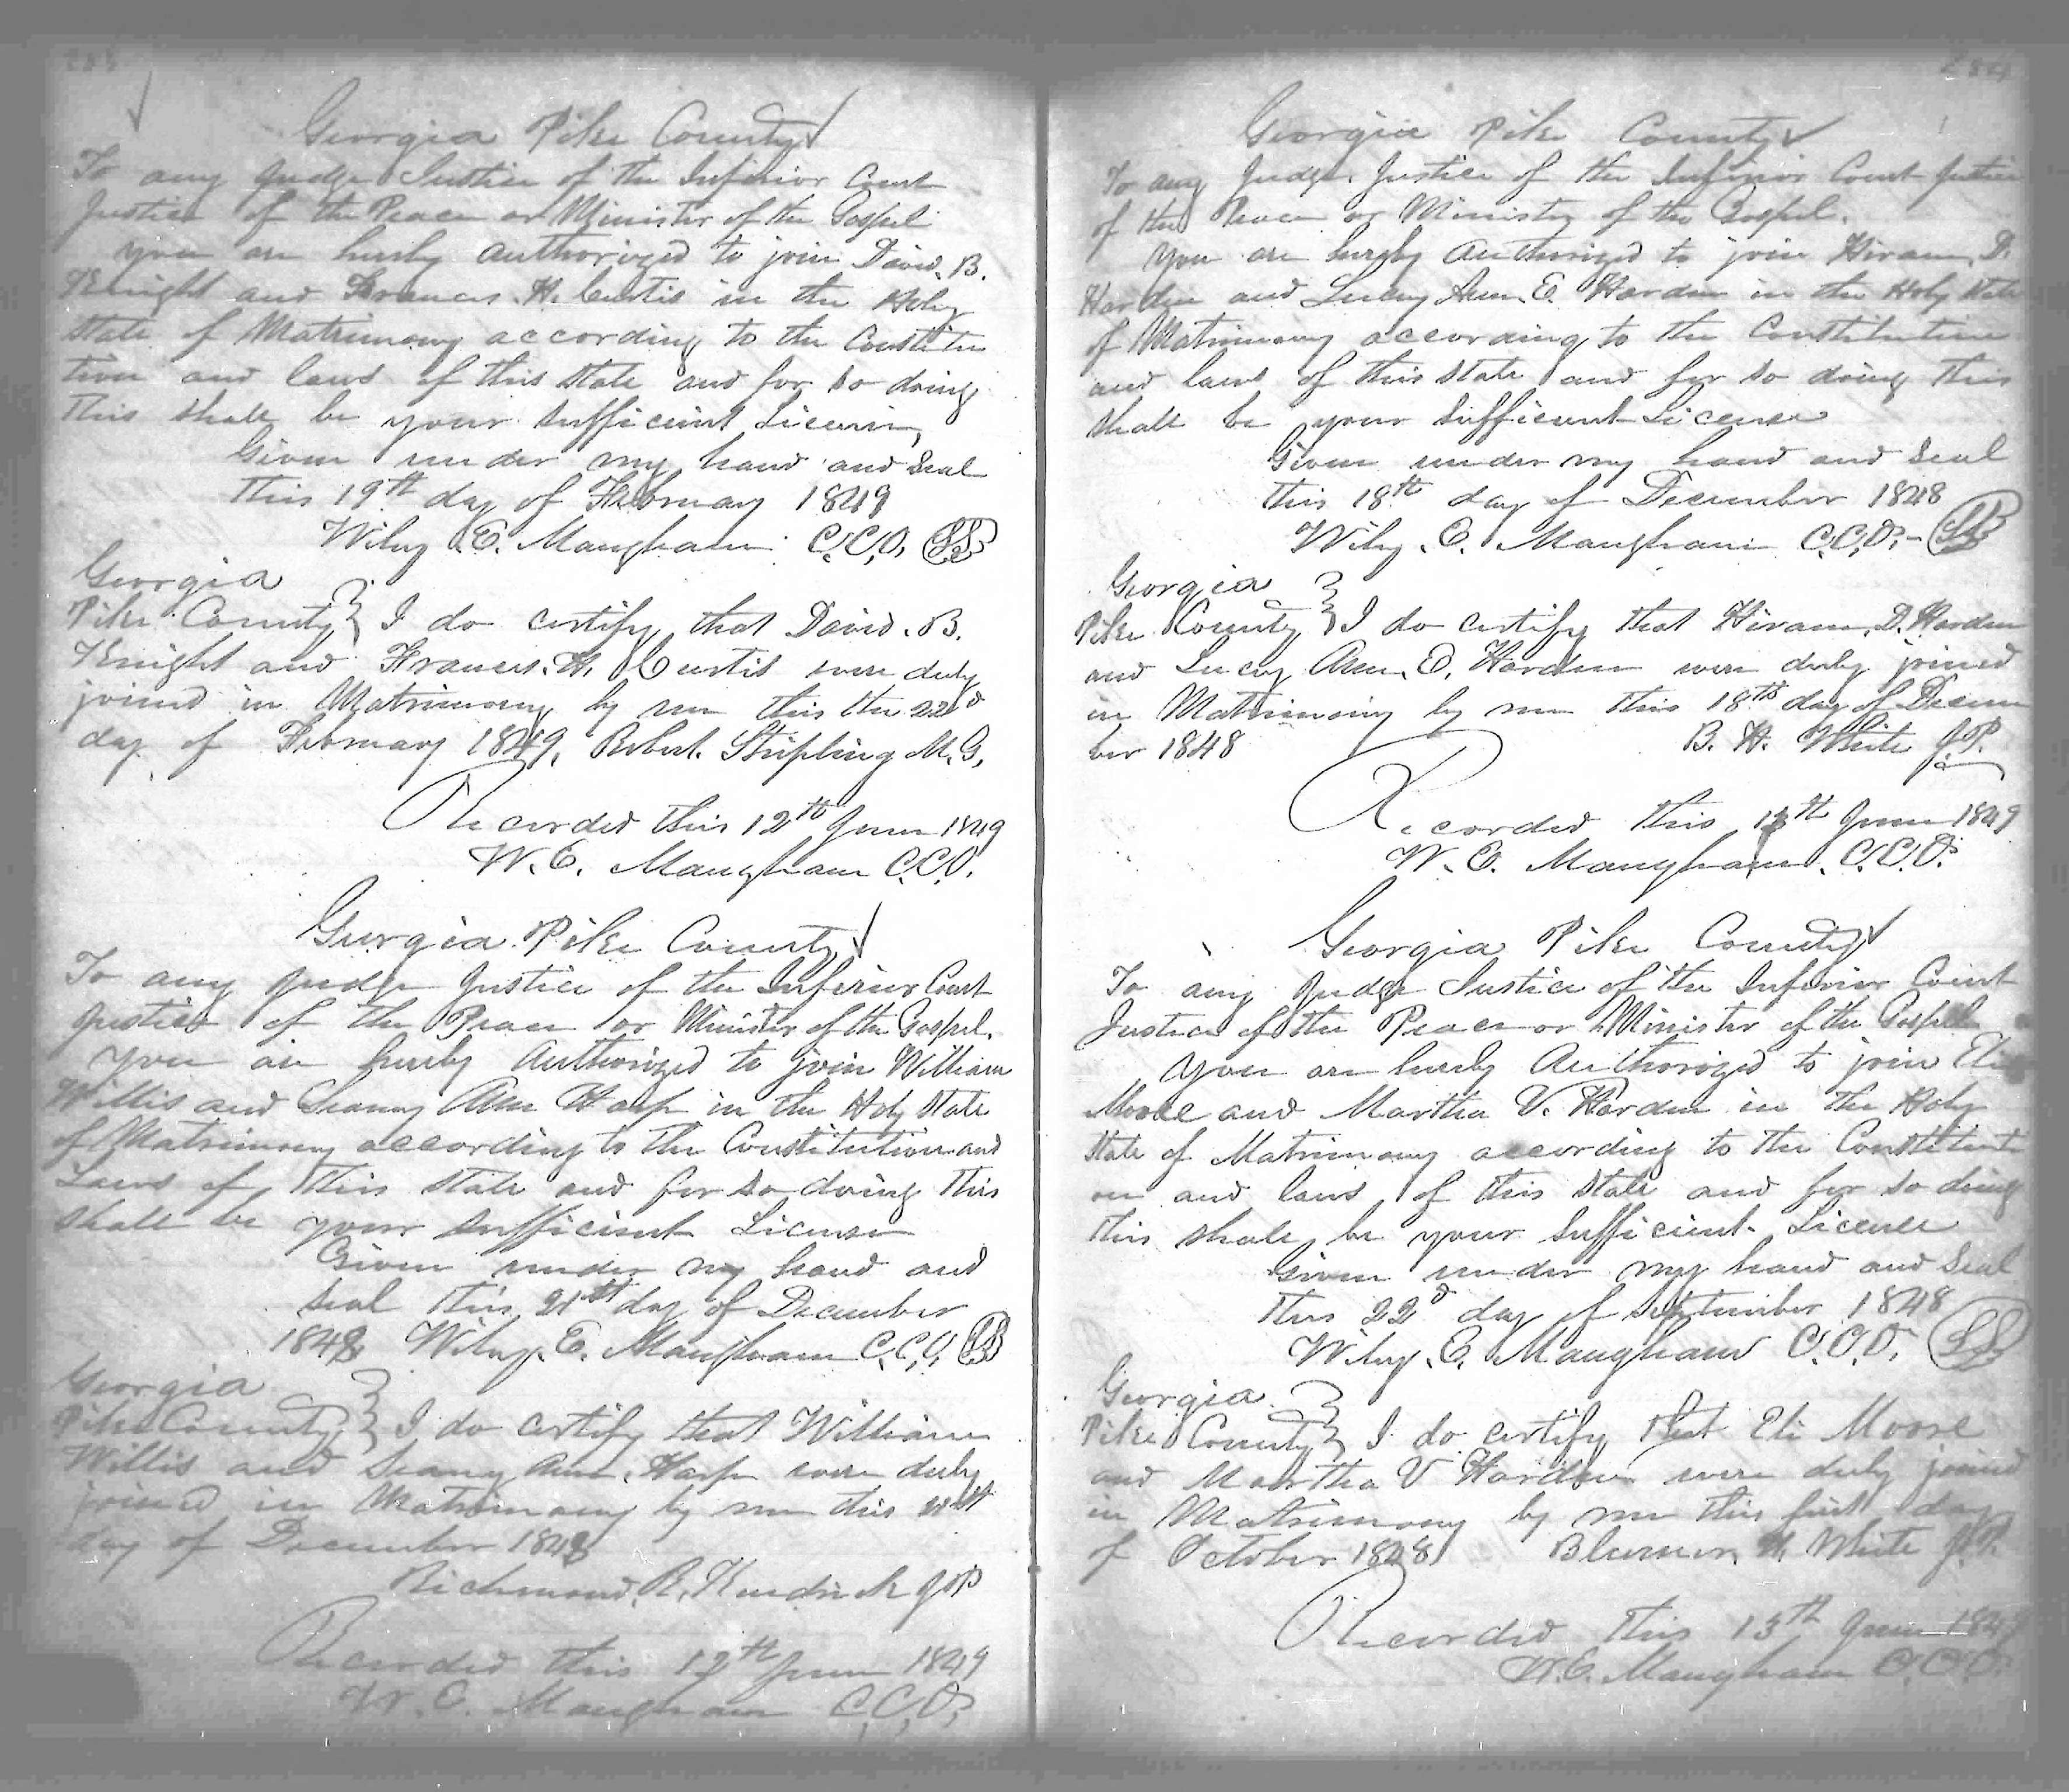 Georgia Pike County
To any Judge Justice of the Inferior Court
Justice of the Peace or Minister of the Gospel
you are hereby authorized to join David. B.
Knight and Frances. H. Curtis in the Holy
State of Matrimony according to the Constitu
tion and laws of this State and for so doing
this shall be your sufficient License,
Given under my hand and Seal
this 19th day of February 1849
Wiley. E. Mangham C.C.O. LS
Georgia
Pike County } I do certify that David. B.
Knight and Frances. H. Curtis were duly
joined in Matrimony by me this the 22d
day of February 1849, Robert. Stripling M.G,
Recorded this 12th June 1849
W. E. Mangham C.C.O.
Georgia Pike County
To any Judge Justice of the Inferior Court
Justice of the Peace or Minister of the Gospel.
you are hereby Authorized to join William
Willis and Ann Harp in the Holy State
of Matrimony according to the Constitution and
Laws of this State and for so doing this
shall be your sufficient License
Given under my hand and
Seal this 21th day of December
1848 Wiley. E. Mangham C.C.O. LS
Georgia
Pike County } I do certify that William
Willis and Ann. Harp were duly
joined in Matrimony by me this
day of December 1848
Richmond. R. Kendrick J.P
Recorded this 12th June 1849
W. E. Mangham C.C.O.
Georgia Pike County
To any Judge, Justice of the Inferior Court Justice
of the Peace or Minister of the Gospel.
You are hereby Authorized to join Hiram. D.
Harden and Lucy Ann. E. Harden in the Holy State
of Matrimony according to the Constitution
and laws of this State and for so doing this
shall be your sufficient License
Given under my hand and Seal
this 18th day of December 1848
Wiley. E. Mangham C.C.O. LS
Georgia
Pike County } I do certify that Hiram. D. Harden
and Lucy Ann. E. Harden were duly joined
in Matrimony by me this 18th day of Decem
ber 1848 B. H. White J.P.
Recorded this 13th June 1849
W. E. Mangham. C.C.O.
Georgia Pike County
To any Judge Justice of the Inferior Court
Justice of the Peace or Minister of the Gospel
You are hereby Authorized to join Eli
Moore and Martha V. Harden in the Holy
State of Matrimony according to the Constituti
on and laws of this State and for so doing
this shall be your sufficient License
Given under my hand and Seal
this 22d day of September 1848
Wiley. E. Mangham C.C.O. LS
Georgia
Pike County } I do certify that Eli Moore
and Martha V Harden were duly joined
in Matrimony by me this first day
of October 1848 H. White J.P.
Recorded this 13th June 1849
W. E. Mangham C.C.O